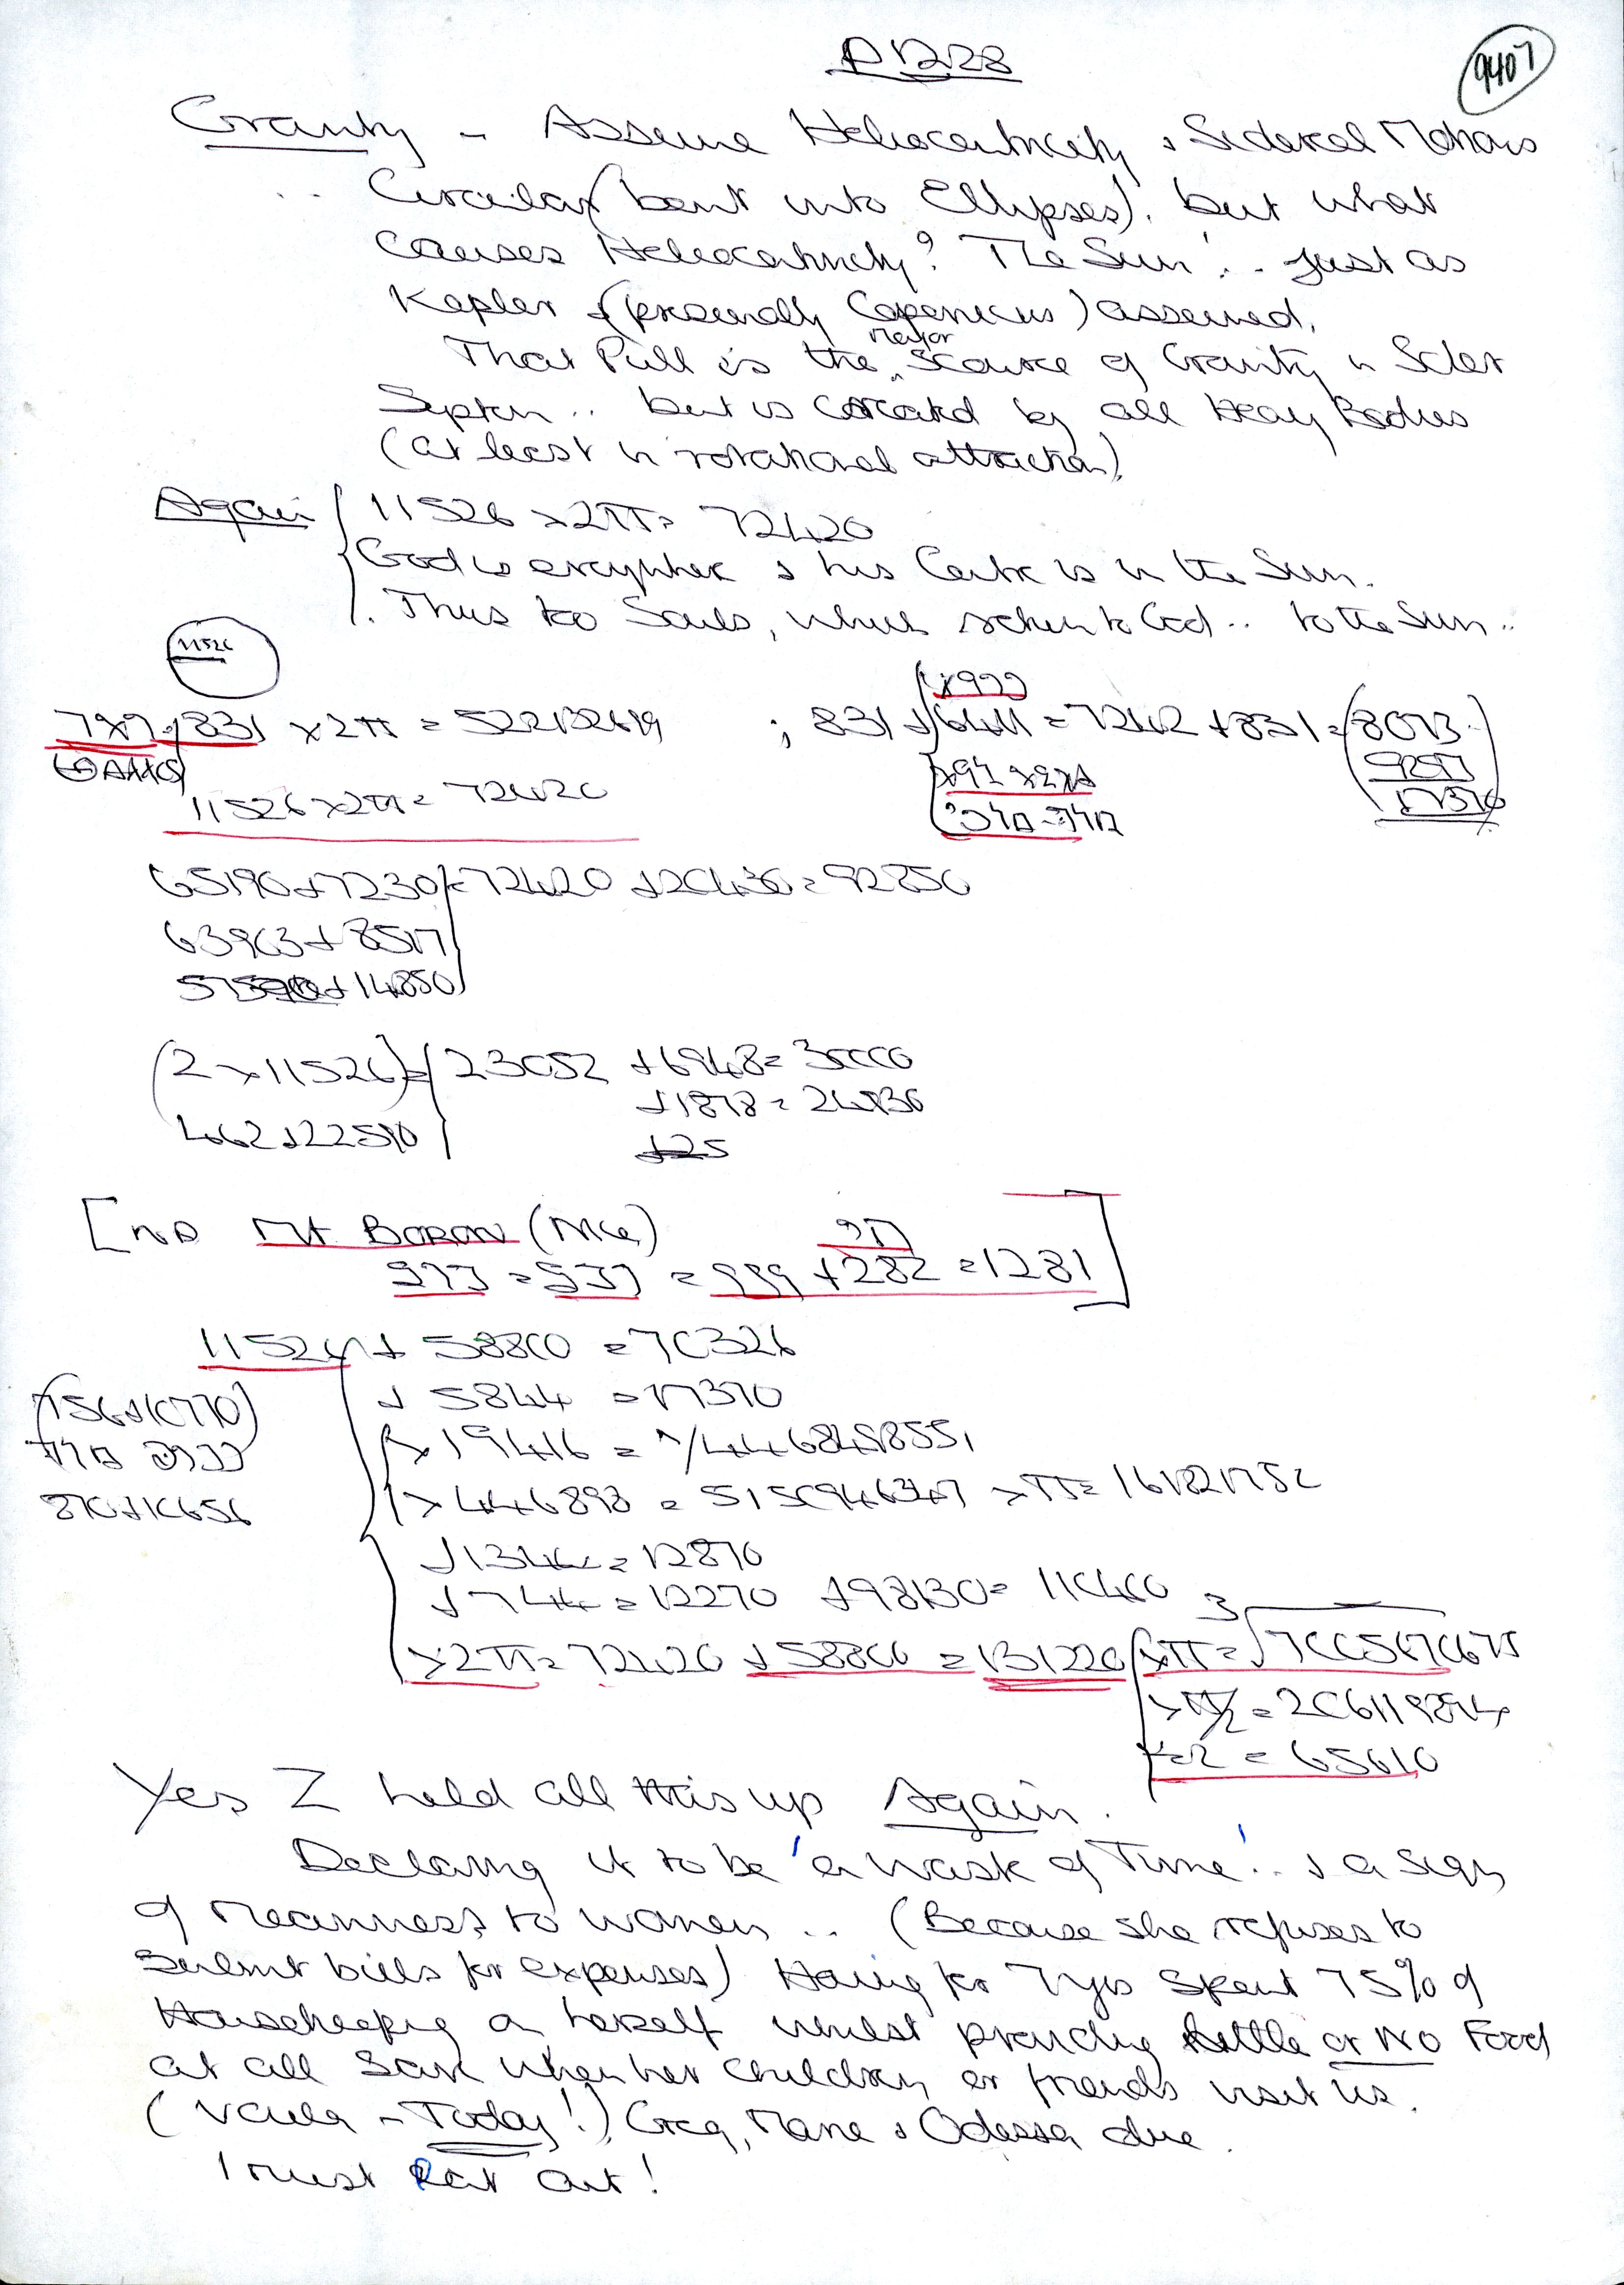 P1228
9407
Gravity - Assume Heliocentricity & Sidereal Motions
Circular (bent into Ellipses). but what
causes Heliocentricity? The Sun! .. Just as
Kepler & (presumably Copernicus) assumed.
That Pull is the major source of Gravity in Solar
System .. but is created by all Heavy Bodies
(at least in rotational attraction)
Again 11526 x 2π = 72420
God is everywhere & his Centre is in the Sun.
Thus too Souls, which return to God .. to the Sun ..
11526
831 x 2π = 522132619 ; 831 + 6411 = 7242 + 831 = 8073
9297
17370
11526 x 2π = 72420
65190 + 7230 = 72420 + 20430 = 92850
63903 + 8517
+ 14850
(2 x 11526) = 23052 + 6948 = 30000
+ 1878 = 24930
462 + 22590
+25
[NB Mt BORON (Nice)
= 999 + 282 = 1281]
11526 + 58800 = 70326
756 + 10770
+ 5844 = 17370
x 19416 =
870 + 10656
x 446898 = 5150946347 x π = 161821752
+ 1344 = 12870
+ 744 = 12270 + 98130 = 110400
x 2π = 72420 + 58800 = 131220 x π = 3√
x π/2 = 206119854
÷ 2 = 65610
Yes I held all this up Again.
Declaring it to be 'a waste of Time'.. & a sign
of meanness to women .. (Because she refuses to
Submit bills for expenses) Having for 7 yrs spent 75% of
Housekeeping on herself whilst providing little or no Food
at all Save when her children or friends visit us.
( - Today!) Greg, Marie & Odessa due.
I must Eat out!